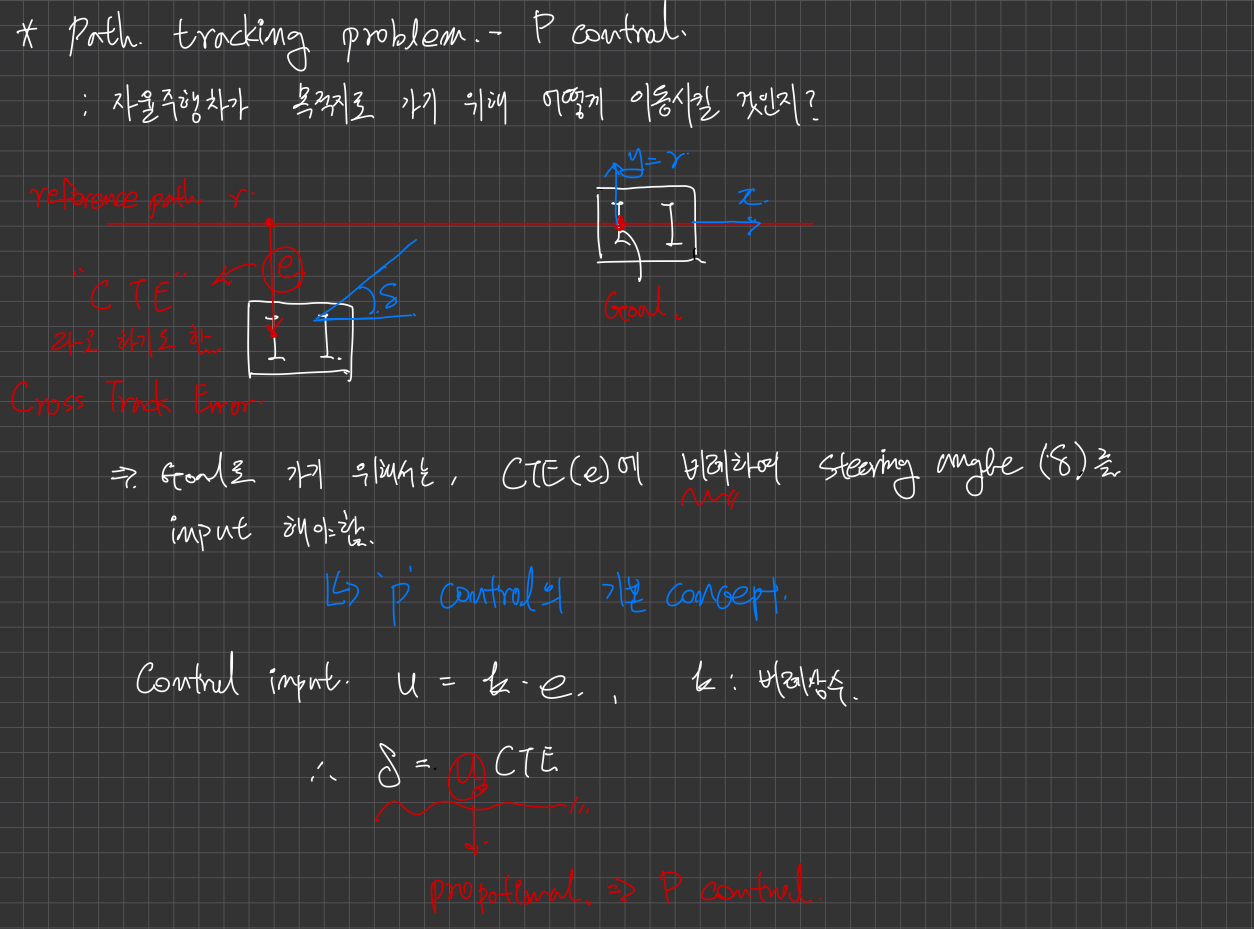 * Path. tracking problem. - P control.
: 자율주행차가 목적지로 가기 위해 어떻게 이동시킬 것인지?
y = r
reference path r
x.
e
"CTE"
δ
라고 하기도 함.
Goal.
Cross Track Error
⇒ Goal로 가기 위해서는, CTE(e)에 비례하여 steering angle (δ)를
input 해야함.
↳ 'p' control의 기본 concept.
Control input. u = k · e. , k : 비례상수.
∴ δ = CTE
propotional. ⇒ P control.